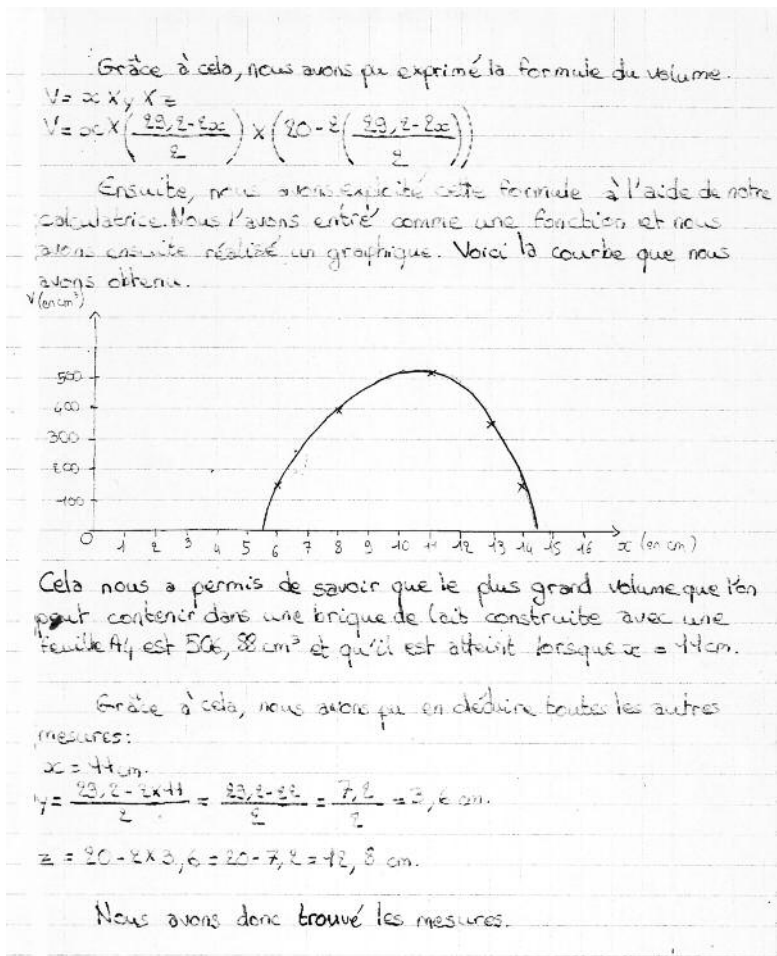 Grâce à cela, nous avons pu exprimé la formule du volume.
V = x × y × z
V = x × ( (29,2-2x)/2 ) × ( 20 - 2 ( (29,2-2x)/2 ) )
Ensuite, nous avons explicité cette formule à l'aide de notre
calculatrice. Nous l'avons entré comme une fonction et nous
avons ensuite réalisé un graphique. Voici la courbe que nous
avons obtenu.
V (en cm³)
500
400
300
200
100
0 1 2 3 4 5 6 7 8 9 10 11 12 13 14 15 16 x (en cm)
Cela nous a permis de savoir que le plus grand volume que l'on
peut contenir dans une brique de lait construite avec une
feuille A4 est 506,88 cm³ et qu'il est atteint lorsque x = 11cm.
Grâce à cela, nous avons pu en déduire toutes les autres
mesures:
x = 11cm.
y = (29,2-2×11)/2 = (29,2-22)/2 = 7,2/2 = 3,6 cm.
z = 20-2×3,6 = 20-7,2 = 12,8 cm.
Nous avons donc trouvé les mesures.